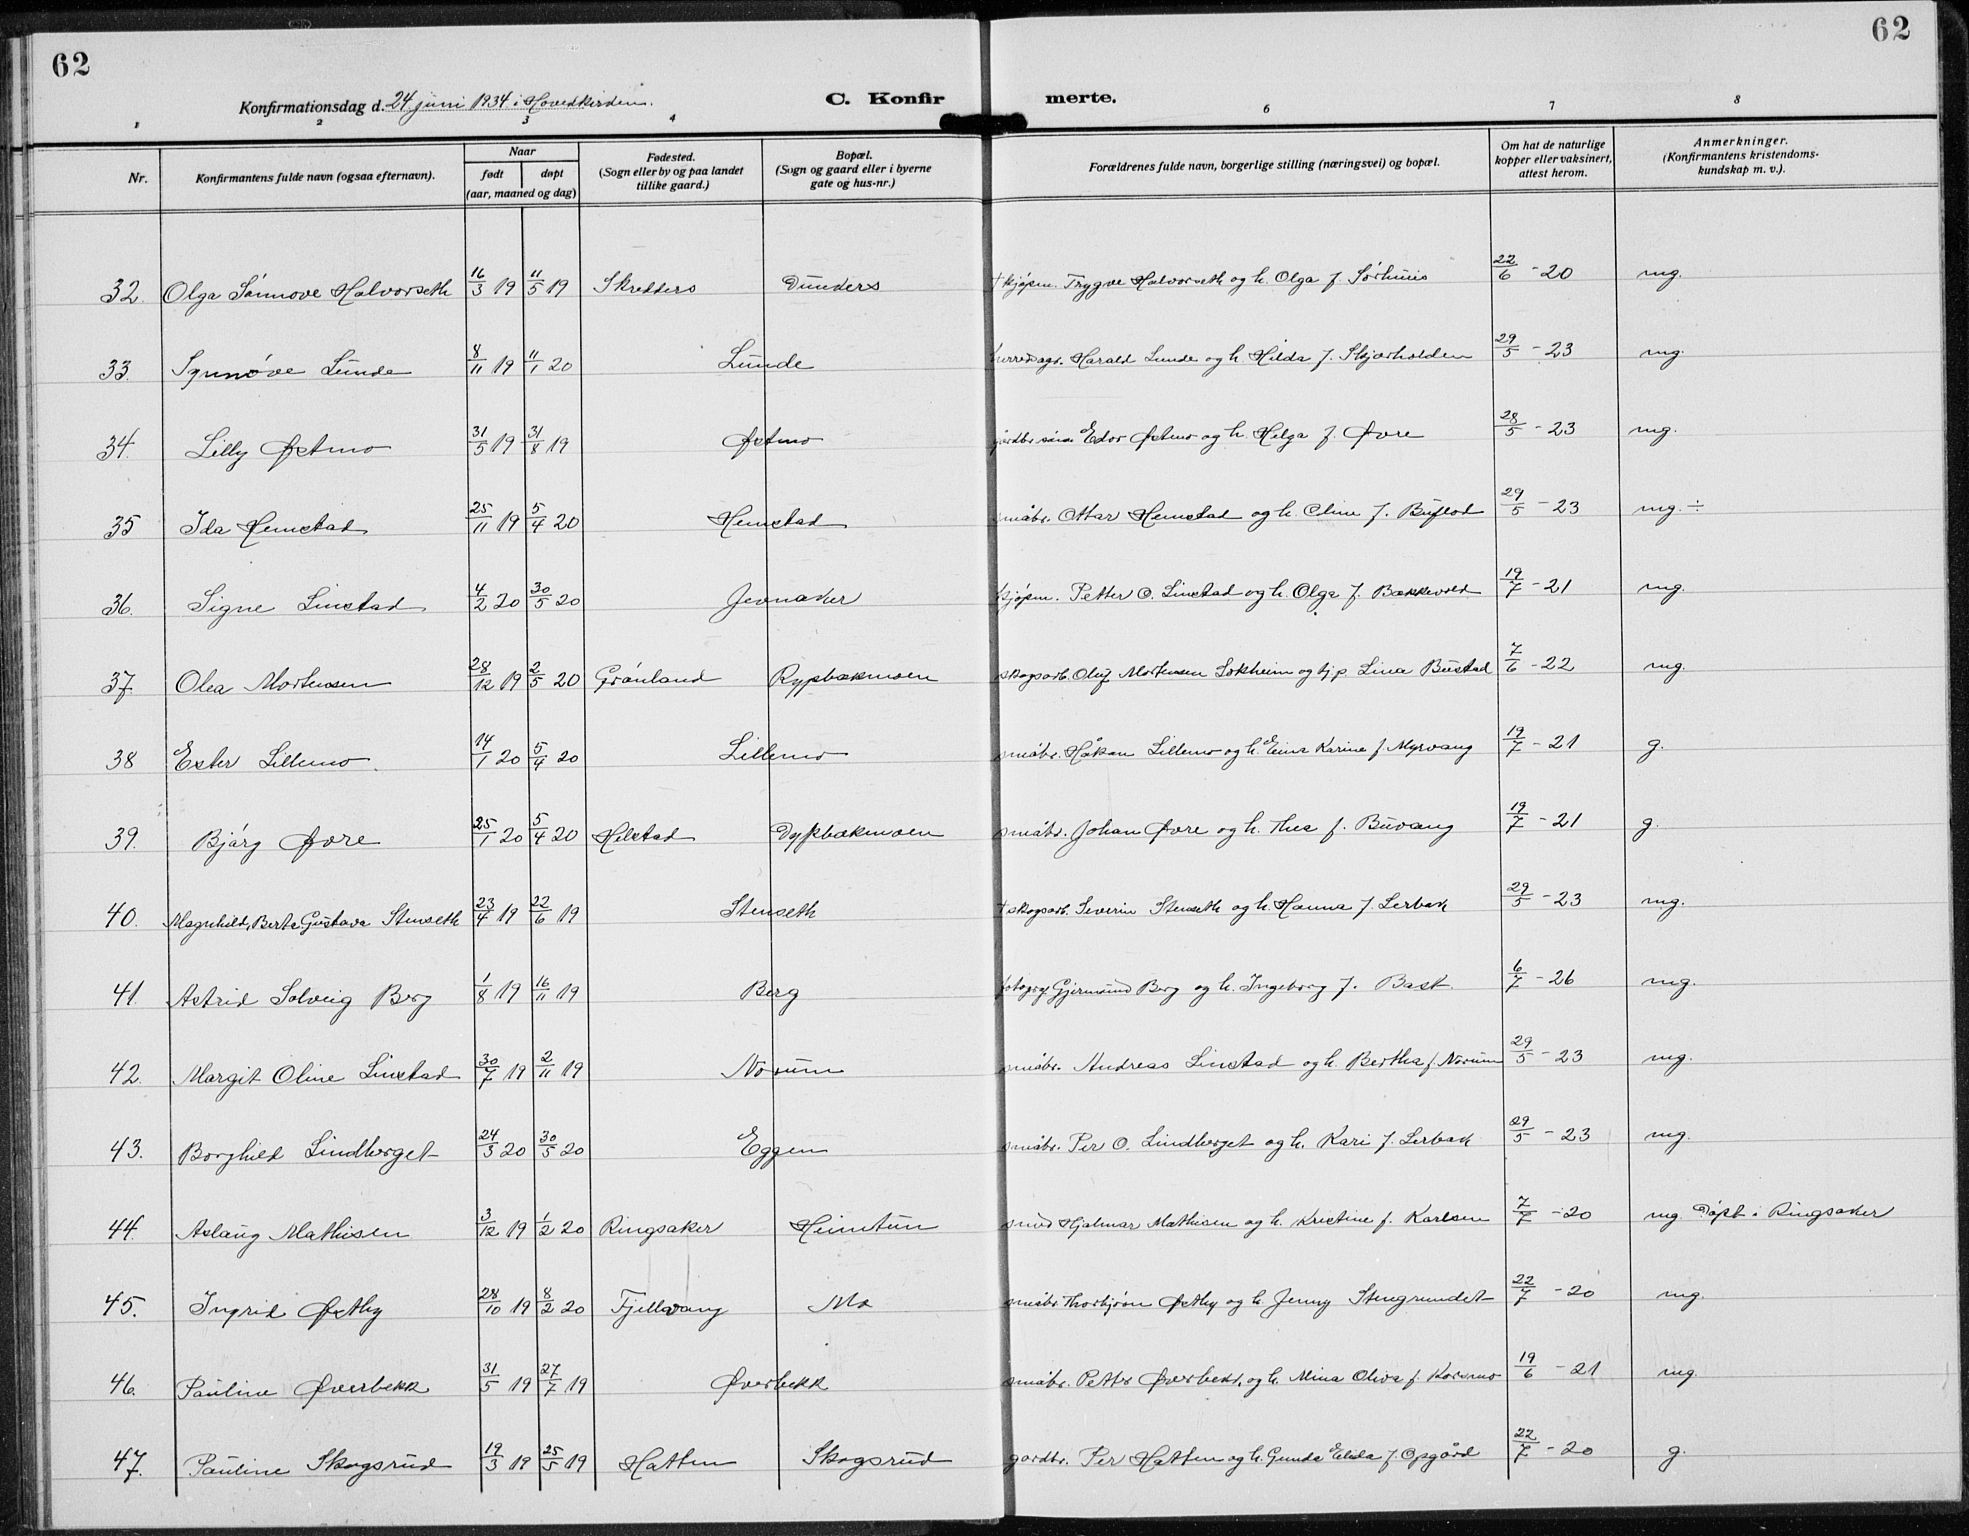 62
62
Konfirmationsdag d. 24 juni 1934 i Hovedkirden.
C. Konfir merte.
1 2 3 4 6 7 8
Nr.
Konfirmantens fulde navn (ogsaa efternavn).
Naar
født døpt
(aar, maaned og dag)
Fødested.
(Sogn eller by og paa landet
tillike gaard.)
Bopæl.
(Sogn og gaard eller i byerne
gate og hus-nr.)
Forældrenes fulde navn, borgerlige stilling (næringsvei) og bopæl.
Om hat de naturlige
kopper eller vaksinert,
attest herom.
Anmerkninger.
(Konfirmantens kristendoms-
kundskap m. v.).
32. Olga Sónnove Halvorseth 16/3 19 11/5 19 Skredders Dunders † kjøpm. Trygve Halvorseth og h. Olga f. Sørhuus 22/6 - 20 mg.
33. Synnóve Lunde 8/11 19 11/1 20 Lunde Harald Lunde og h. Hilda f. Skjærholden 29/5 - 23 mg.
34. Lilly Østmo 31/5 19 31/8 19 Østmo Edor Østmo og h. Helga f. Øvre 28/5 - 23 mg.
35 Ida Hemstad 25/11 19 5/4 20 Hemstad småbr. Ottar Hemstad og h. Oline f. Buflod 29/5 - 23 mg. ÷
36. Signe Linstad 4/2 20 30/5 20 Jevnaker kjøpm. Petter O. Linstad og h. Olga f. Bakkevold 19/7 - 21 mg.
37. Olea Mortensen 28/12 19 2/5 20 Grónland Rypbakmoen skogsarb. Oluf Mortensen Sokheim og tj.p. Lina Bustad 7/6 - 22 mg.
38 Ester Lillemo 14/1 20 5/4 20 Lillemo småbr. Håkan Lillemo og h. Eina Karine f. Myrvang 19/7 - 21 g.
39. Bjórg Øvre 25/1 20 5/4 20 Helstad Dypbakmoen småbr. Johan Øvre og h. Thea f. Buvang 19/7 - 21 g.
40. Magnhild, Berta Gustava Stenseth 23/4 19 22/6 19 Stenseth † skogsarb. Severin Stenseth og h. Hanna f. Lerbak 29/5 - 23 mg.
41. Astrid Solveig Berg 1/8 19 16/11 19 Berg fotogr. Gjermund Berg og h. Ingeborg f. Bast 6/7 - 26 mg.
42. Margit Oline Linstad 30/7 19 2/11 19 Norum småbr. Andreas Linstad og h. Bertha f. Norum 29/5 - 23 mg.
43. Borghild Lindberget 24/3 20 30/5 20 Eggen småbr. Per O. Lindberget og h. Kari f. Lerbak 29/5 - 23 mg.
44. Aslaug Mathisen 3/12 19 1/2 20 Ringsaker Heimtun smed Hjalmar Mathisen og h. Kristine f. Karlsen 7/7 - 20 mg. Døpt i Ringsaker
45. Ingrid Østby 28/10 19 8/2 20 Fjellvang Mo småbr. Thorbjørn Østby og h. Jenny Stengrundet 22/7 - 20 mg.
46. Pauline Øverbekk 31/5 19 27/7 19 Øverbekk småbr. Petter Øverbekk, og h. Mina Oliva f. Korsmo 19/6 - 21 mg.
47. Pauline Skogsrud 19/3 19 25/5 19 Hatten Skogsrud gardbr. Per Hatten og h. Gunda Elida f. Opgård 22/7 - 20 g.